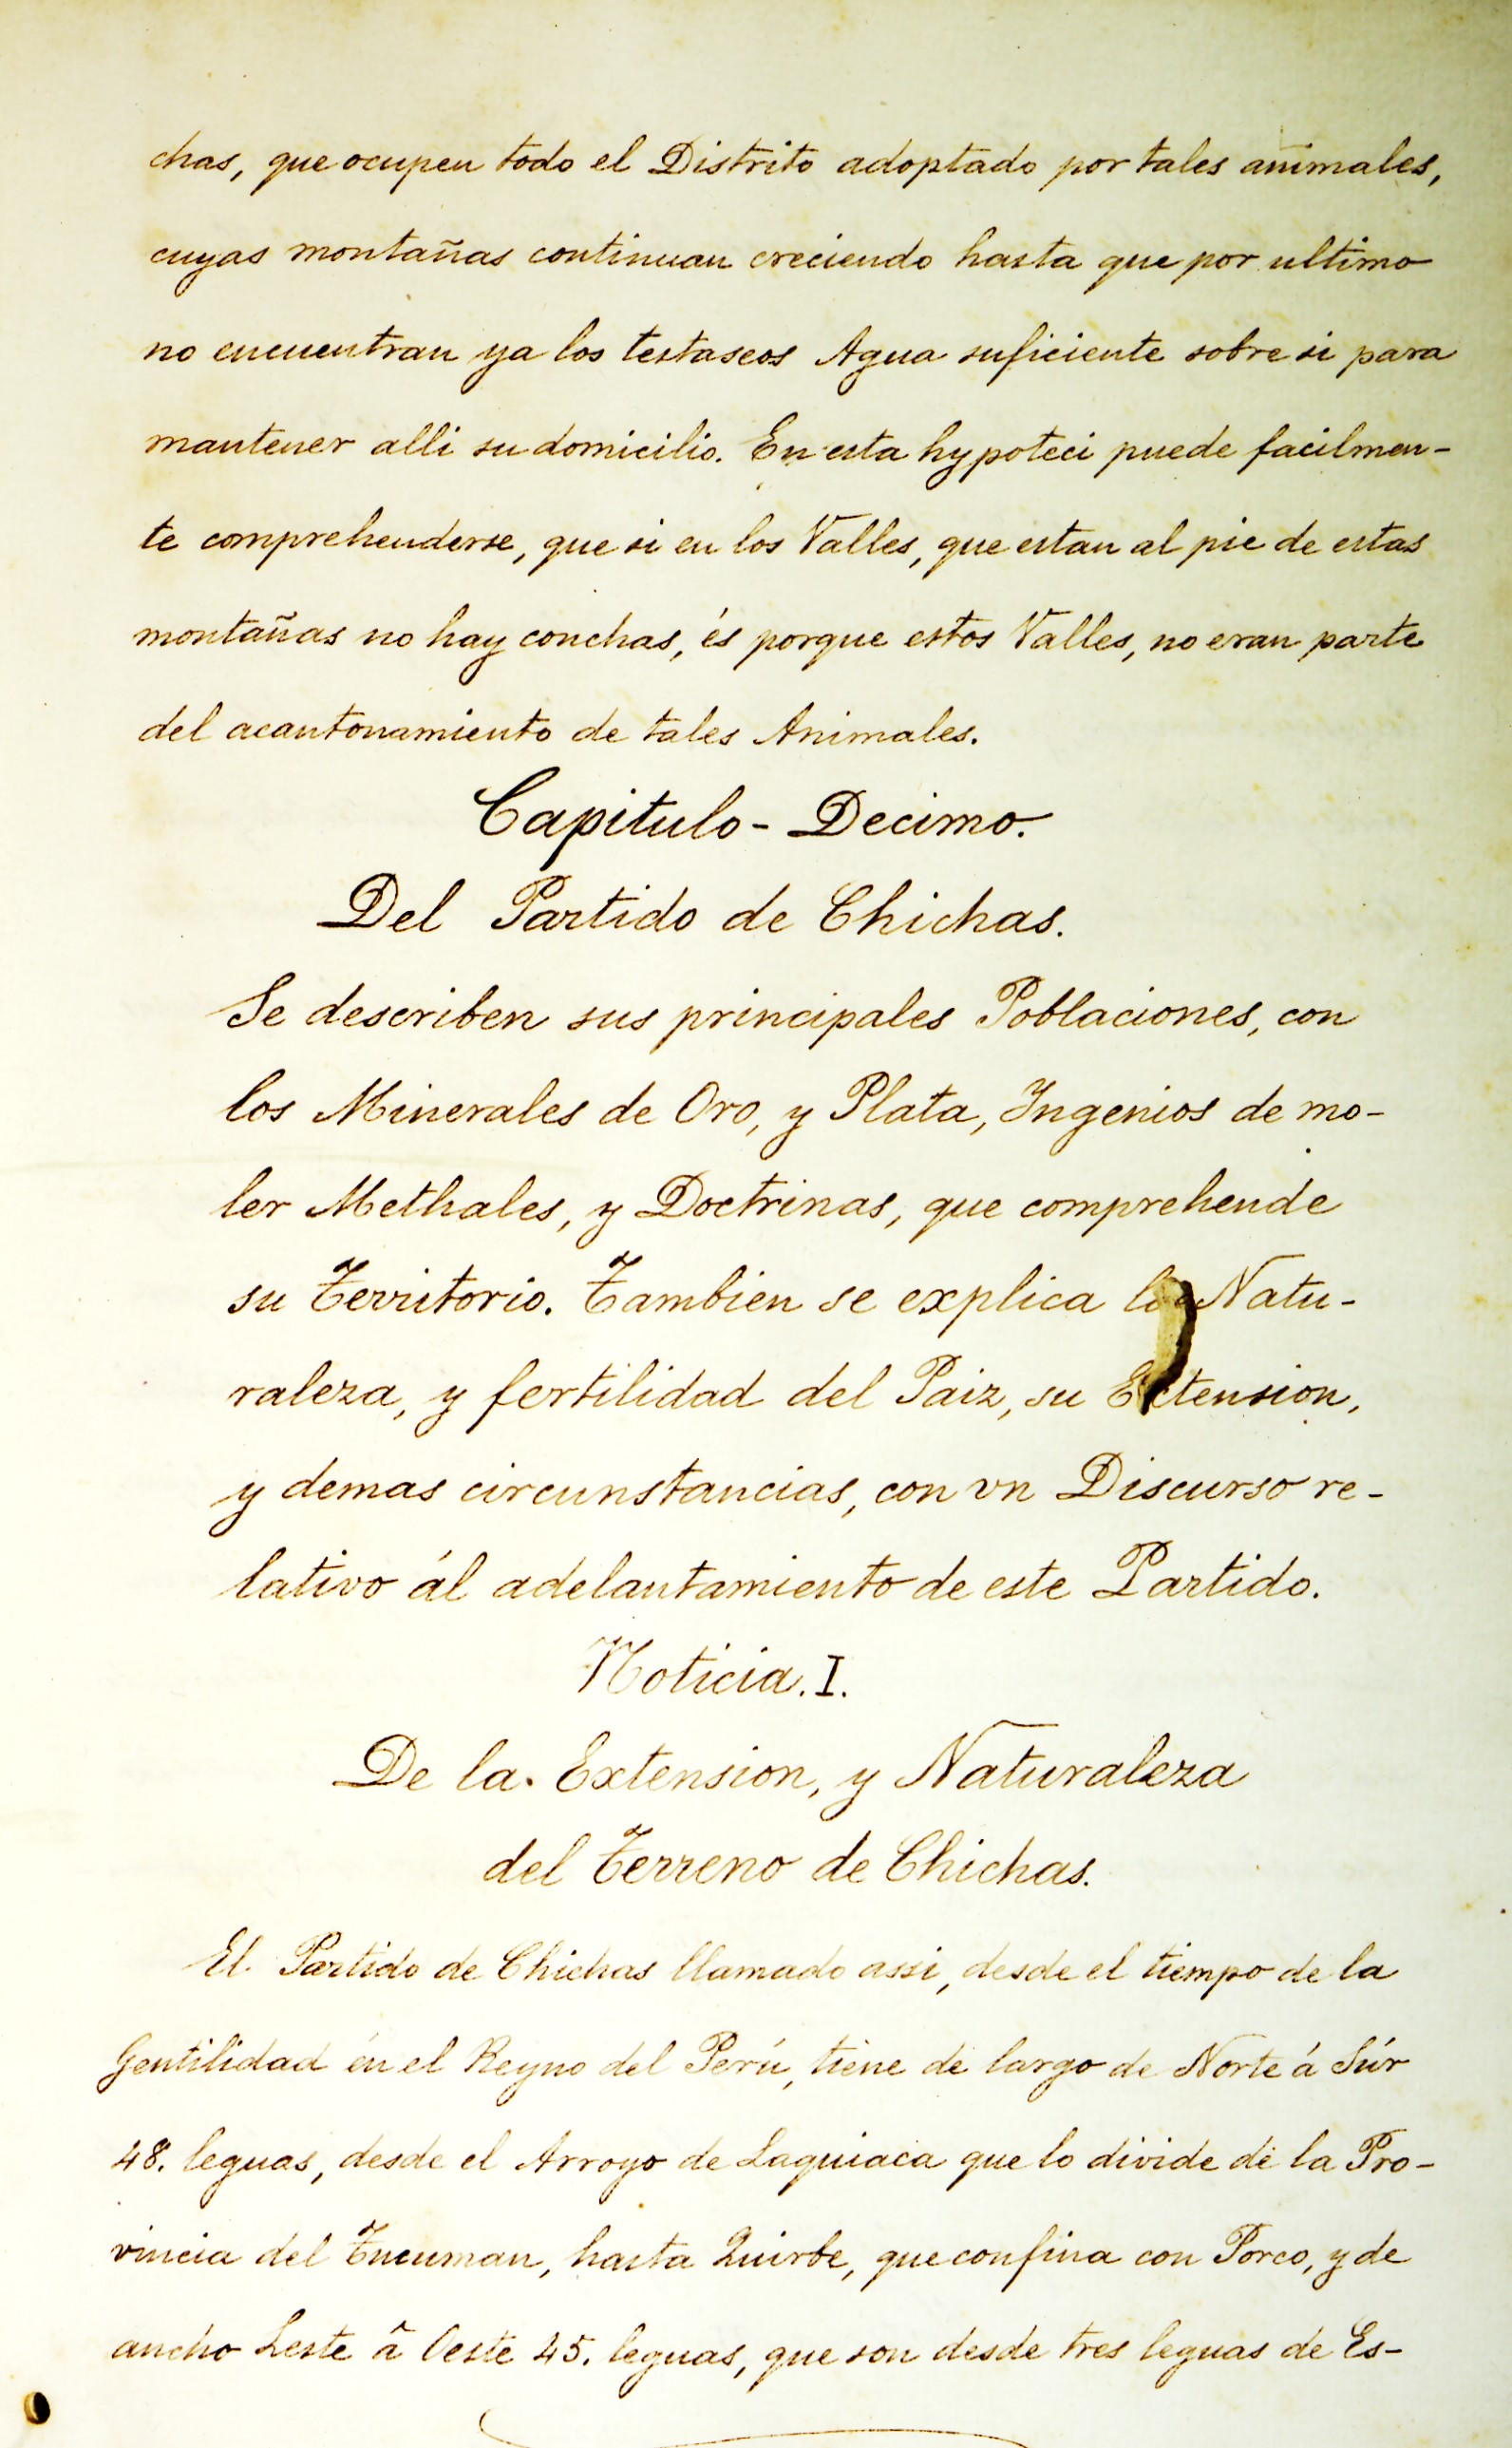 chas, que ocupen todo el Distrito adoptado por tales animales,
cuyas montañas continuan creciendo hasta que por ultimo
no encuentran ya los testaseos Agua suficiente sobre si para
mantener alli su domicilio. En esta hypoteci puede facilmen-
te comprehenderse, que si en los Valles, que estan al pie de estas
montañas no hay conchas, és porque estos Valles, no eran parte
del acantonamiento de tales Animales.
Capitulo - Decimo.
Del Partido de Chichas.
Se describen sus principales Poblaciones, con
los Minerales de Oro, y Plata, Ingenios de mo-
ler Methales, y Doctrinas, que comprehende
su Territorio. Tambien se explica la Natu-
raleza, y fertilidad del Paiz, su Extension,
y demas circunstancias, con vn Discurso re-
lativo ál adelantamiento de este Partido.
Noticia. I.
De la. Extension, y Naturaleza
del Terreno de Chichas.
El. Partido de Chichas llamado assi, desde el tiempo de la
Gentilidad én el Reyno del Perú, tiene de largo de Norte á Súr
48. leguas, desde el Arroyo de Laquiaca que lo divide de la Pro-
vincia del Tucuman, hasta Quirbe, que confina con Porco, y de
ancho Leste â Oeste 45. leguas, que son desde tres leguas de Es-